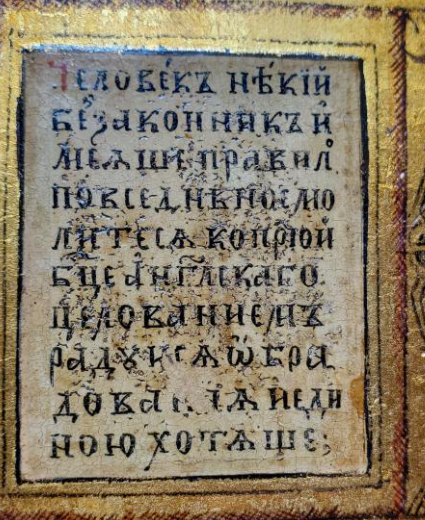 Человѣкъ нѣкїй
беззаконникъ и
мѣяши правил
повседневное мо
литеся ко прт҃ой
бц҃е англ҃скаго
целованиемъ
радуися ѡбра
дова
единою хотяше;